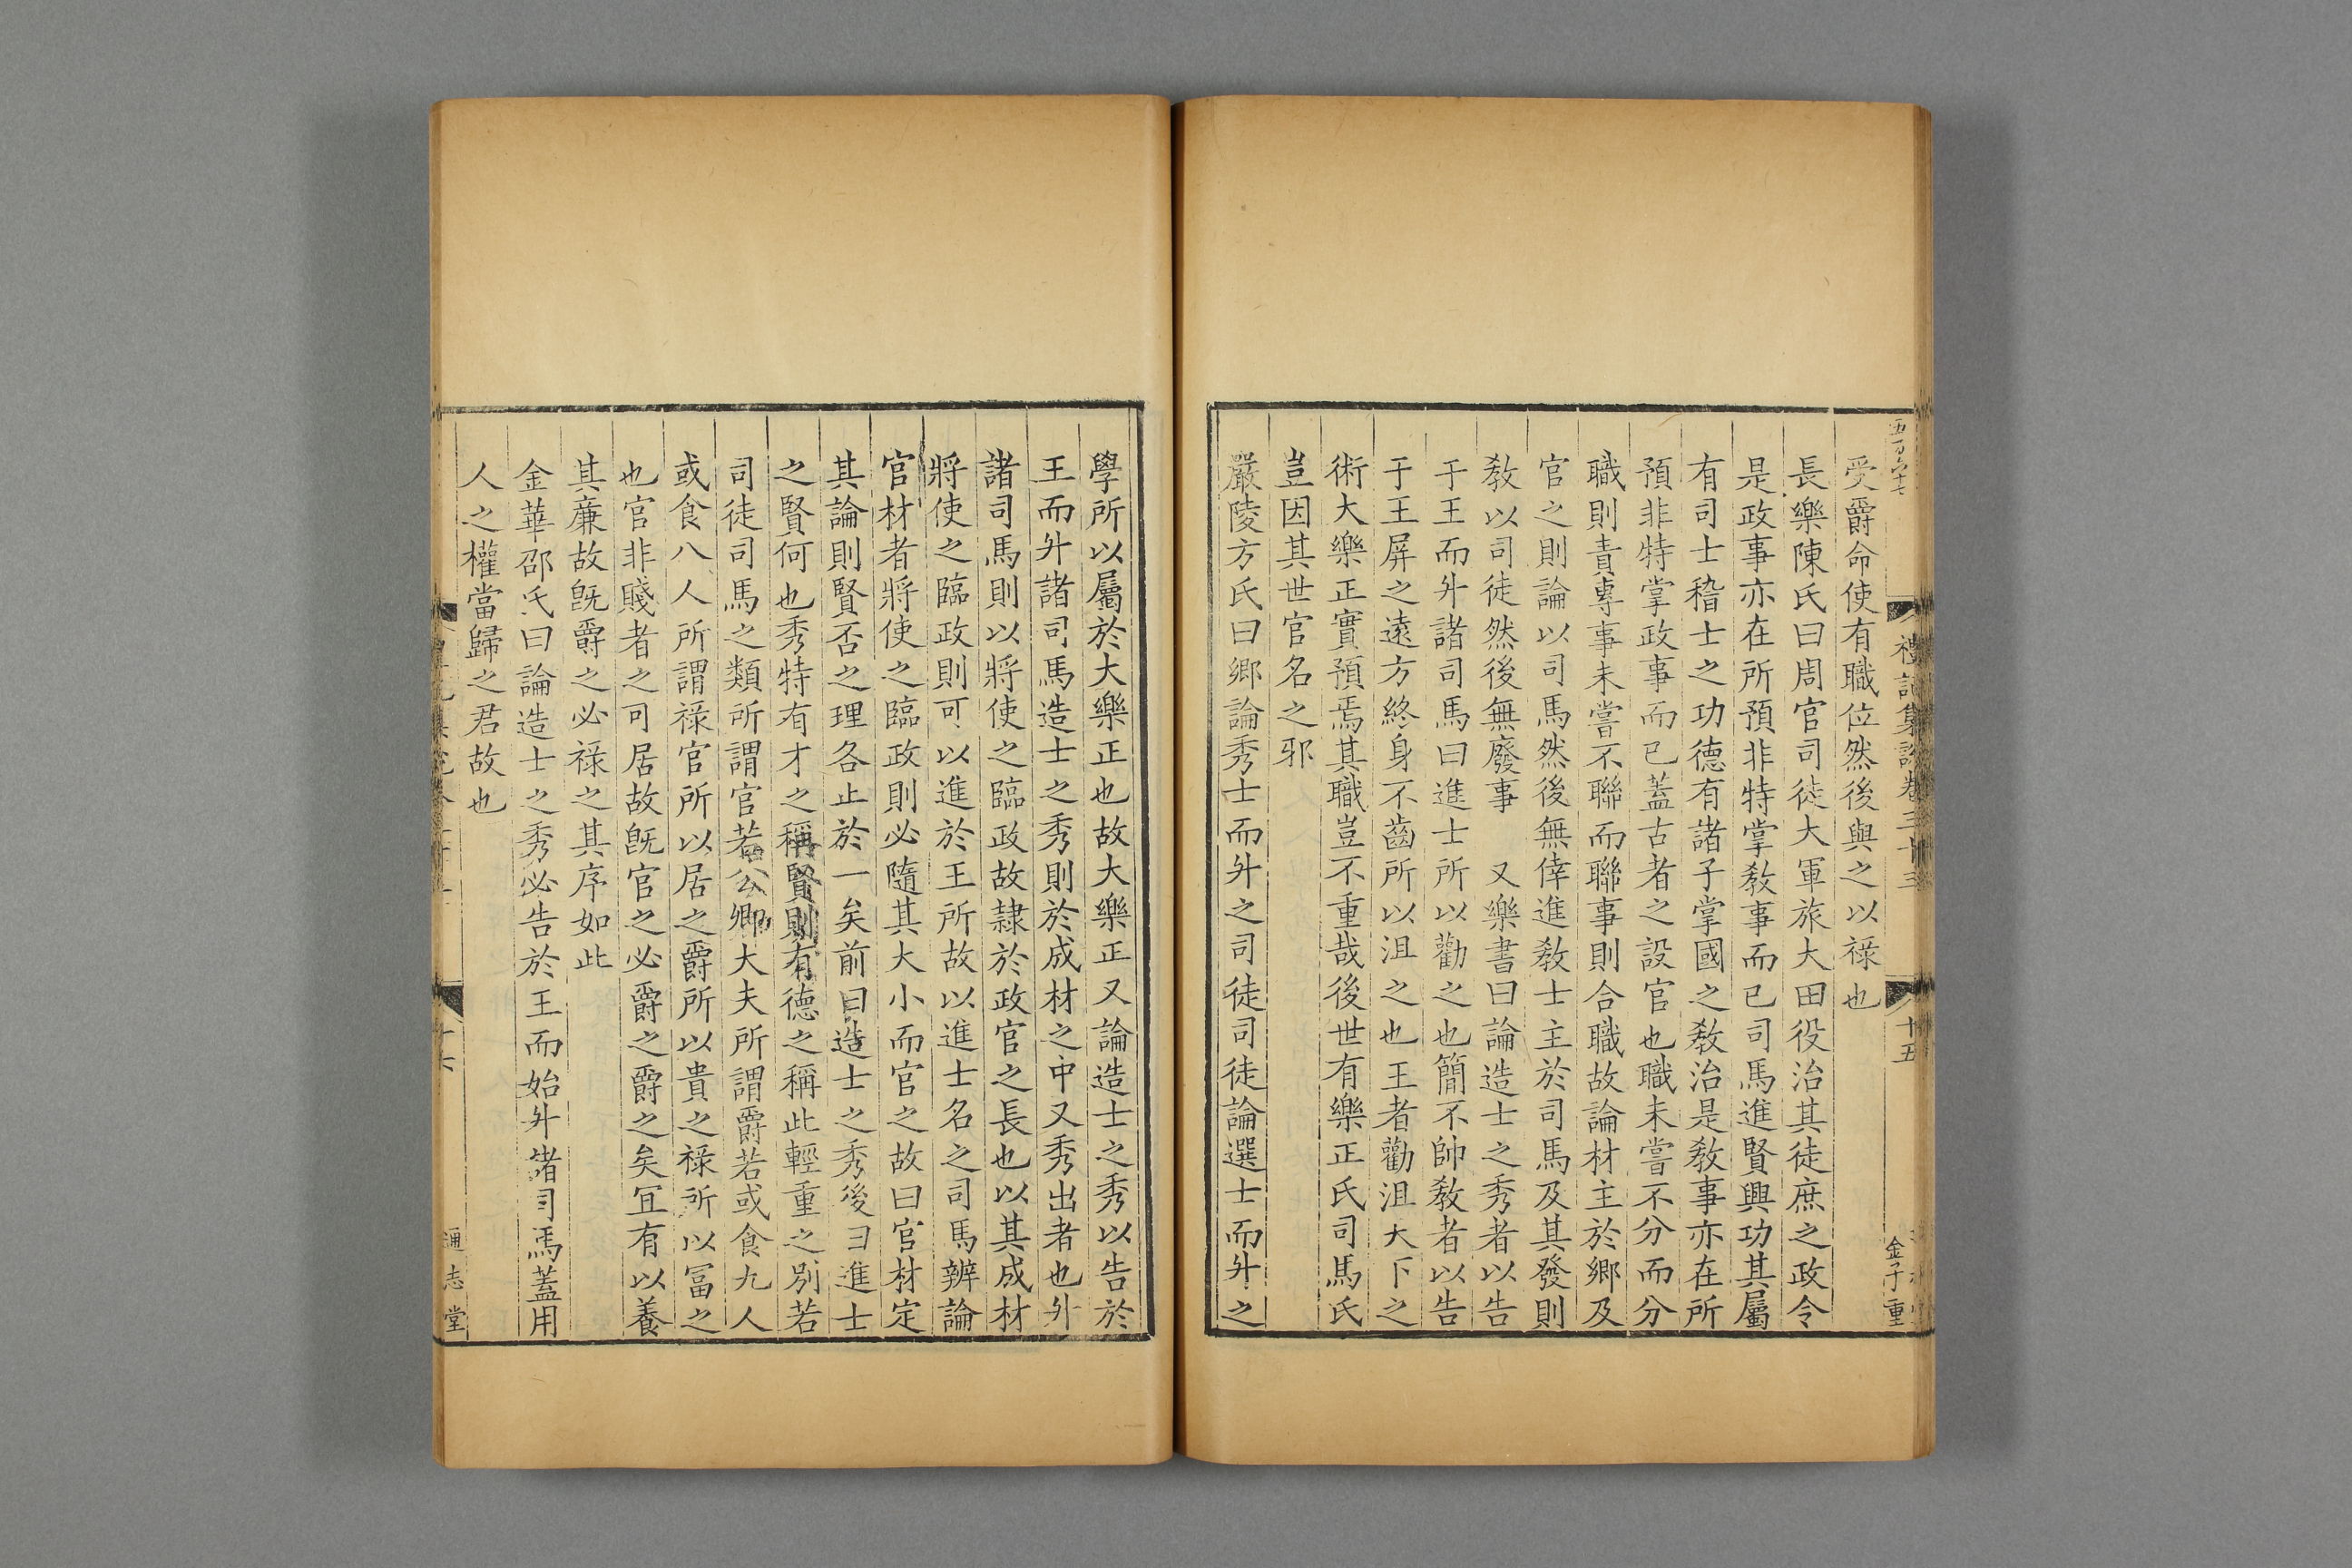 受爵命使有職位然後與之以祿也
長樂陳氏曰周官司徒大軍旅大田役治其徒庶之政令
是政事亦在所預非特掌敎事而已司馬進賢興功其屬
有司士稽士之功德有諸子掌國之敎治是敎事亦在所
預非特掌政事而已蓋古者之設官也職未嘗不分而分
職則責專事未嘗不聯而聯事則合職故論材主於鄉及
官之則論以司馬然後無倖進敎士主於司馬及其發則
敎以司徒然後無廢事 又樂書曰論造士之秀者以告
于王而升諸司馬曰進士所以勸之也簡不帥敎者以告
于王屏之遠方終身不齒所以沮之也王者勸沮大下之
術大樂正實預焉其職豈不重哉後世有樂正氏司馬氏
豈因其世官名之邪
嚴陵方氏曰鄉論秀士而升之司徒司徒論選士而升之
禮記集說卷三十三
十五
金子重
學所以屬於大樂正也故大樂正又論造士之秀以告於
王而升諸司馬造士之秀則於成材之中又秀出者也升
諸司馬則以將使之臨政故隸於政官之長也以其成材
將使之臨政則可以進於王所故以進士名之司馬辨論
官材者將使之臨政則必隨其大小而官之故曰官材定
其論則賢否之理各止於一矣前曰造士之秀後曰進士
之賢何也秀特有才之稱賢則有德之稱此輕重之別若
司徒司馬之類所謂官若公卿大夫所謂爵若或食九人
或食八人所謂祿官所以居之爵所以貴之祿所以冨之
也官非賤者之可居故旣官之必爵之爵之矣冝有以養
其廉故旣爵之必祿之其序如此
金華邵氏曰論造士之秀必告於王而始升諸司馬蓋用
人之權當歸之君故也
十六
通志堂